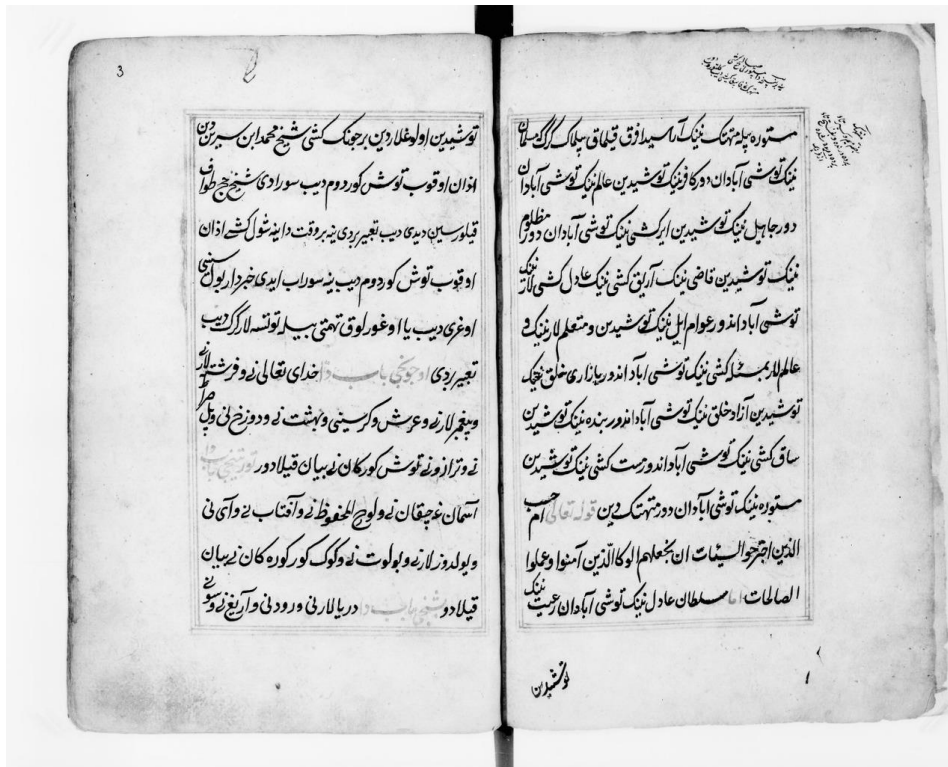 مستوره بیله متهتک نینک آراسیدا فرق قیلماق بیلماک کرک مسلمان
نینک توشی آبادان دور کافر نینک توشیدین عالم نینک توشی آبادان
دور جاهیل نینک توشیدین ایر کشی نینک توشی آبادان دور مظلوم
نینک توشیدین قاضی نینک آریق کشی نینک عادل کشی لار نینک
توشی آباد اندور عوام ایل نینک توشیدین و متعلم لار نینک و
عالم لار کشی نینک توشی اباد اندور بازاری خلق نینک
توشیدین آزاد خلق نینک توشی آباد اندور بنده نینک توشیدین
ساق کشی نینک توشی آباد اندور مست کشی نینک توشیدین
مستوره نینک توشی ابادان دور متهتک دین قوله تعالی ام حسب
الذین اجترحوا السیئات ان نجعلهم الوکا الذین آمنوا وعملوا
الصالحات اما سلطان عادل نینک توشی آبادان رعیت نینک
توشیدین
3
توشیدین اولوغلاردین بر جونک کشی شیخ محمد ابن سیرین دین
اذان اوقوب توش کوردوم دیب سورادی شیخ حج طواف
قیلورسین دیدی دیب تعبیر بردی ینه بر وقت دا ینه شول کشی اذان
اوقوب توش کوردوم دیب ینه سوراب ایدی خبردار بول سنی
اوغری دیب یا اوغورلوق تهمتی بیله توتسه لار کرک دیب
تعبیر بردی اوچونجی باب دا خدای تعالی نی و فرشته لارنی
و پیغمبر لارنی و عرش و کرسینی و بهشت نی و دوزخ نی و پل صراط
نی و ترازونی توش کورکان نی بیان قیلادور تورتینجی باب دا
آسمان غه چققان نی و لوح المحفوظ نی و آفتاب نی و آی نی
و یولدوز لارنی و بولوت نی و کوک کورکوره کان نی بیان
قیلادور بشنجی باب دا دریالارنی و رودنی و آریغ نی و سونی